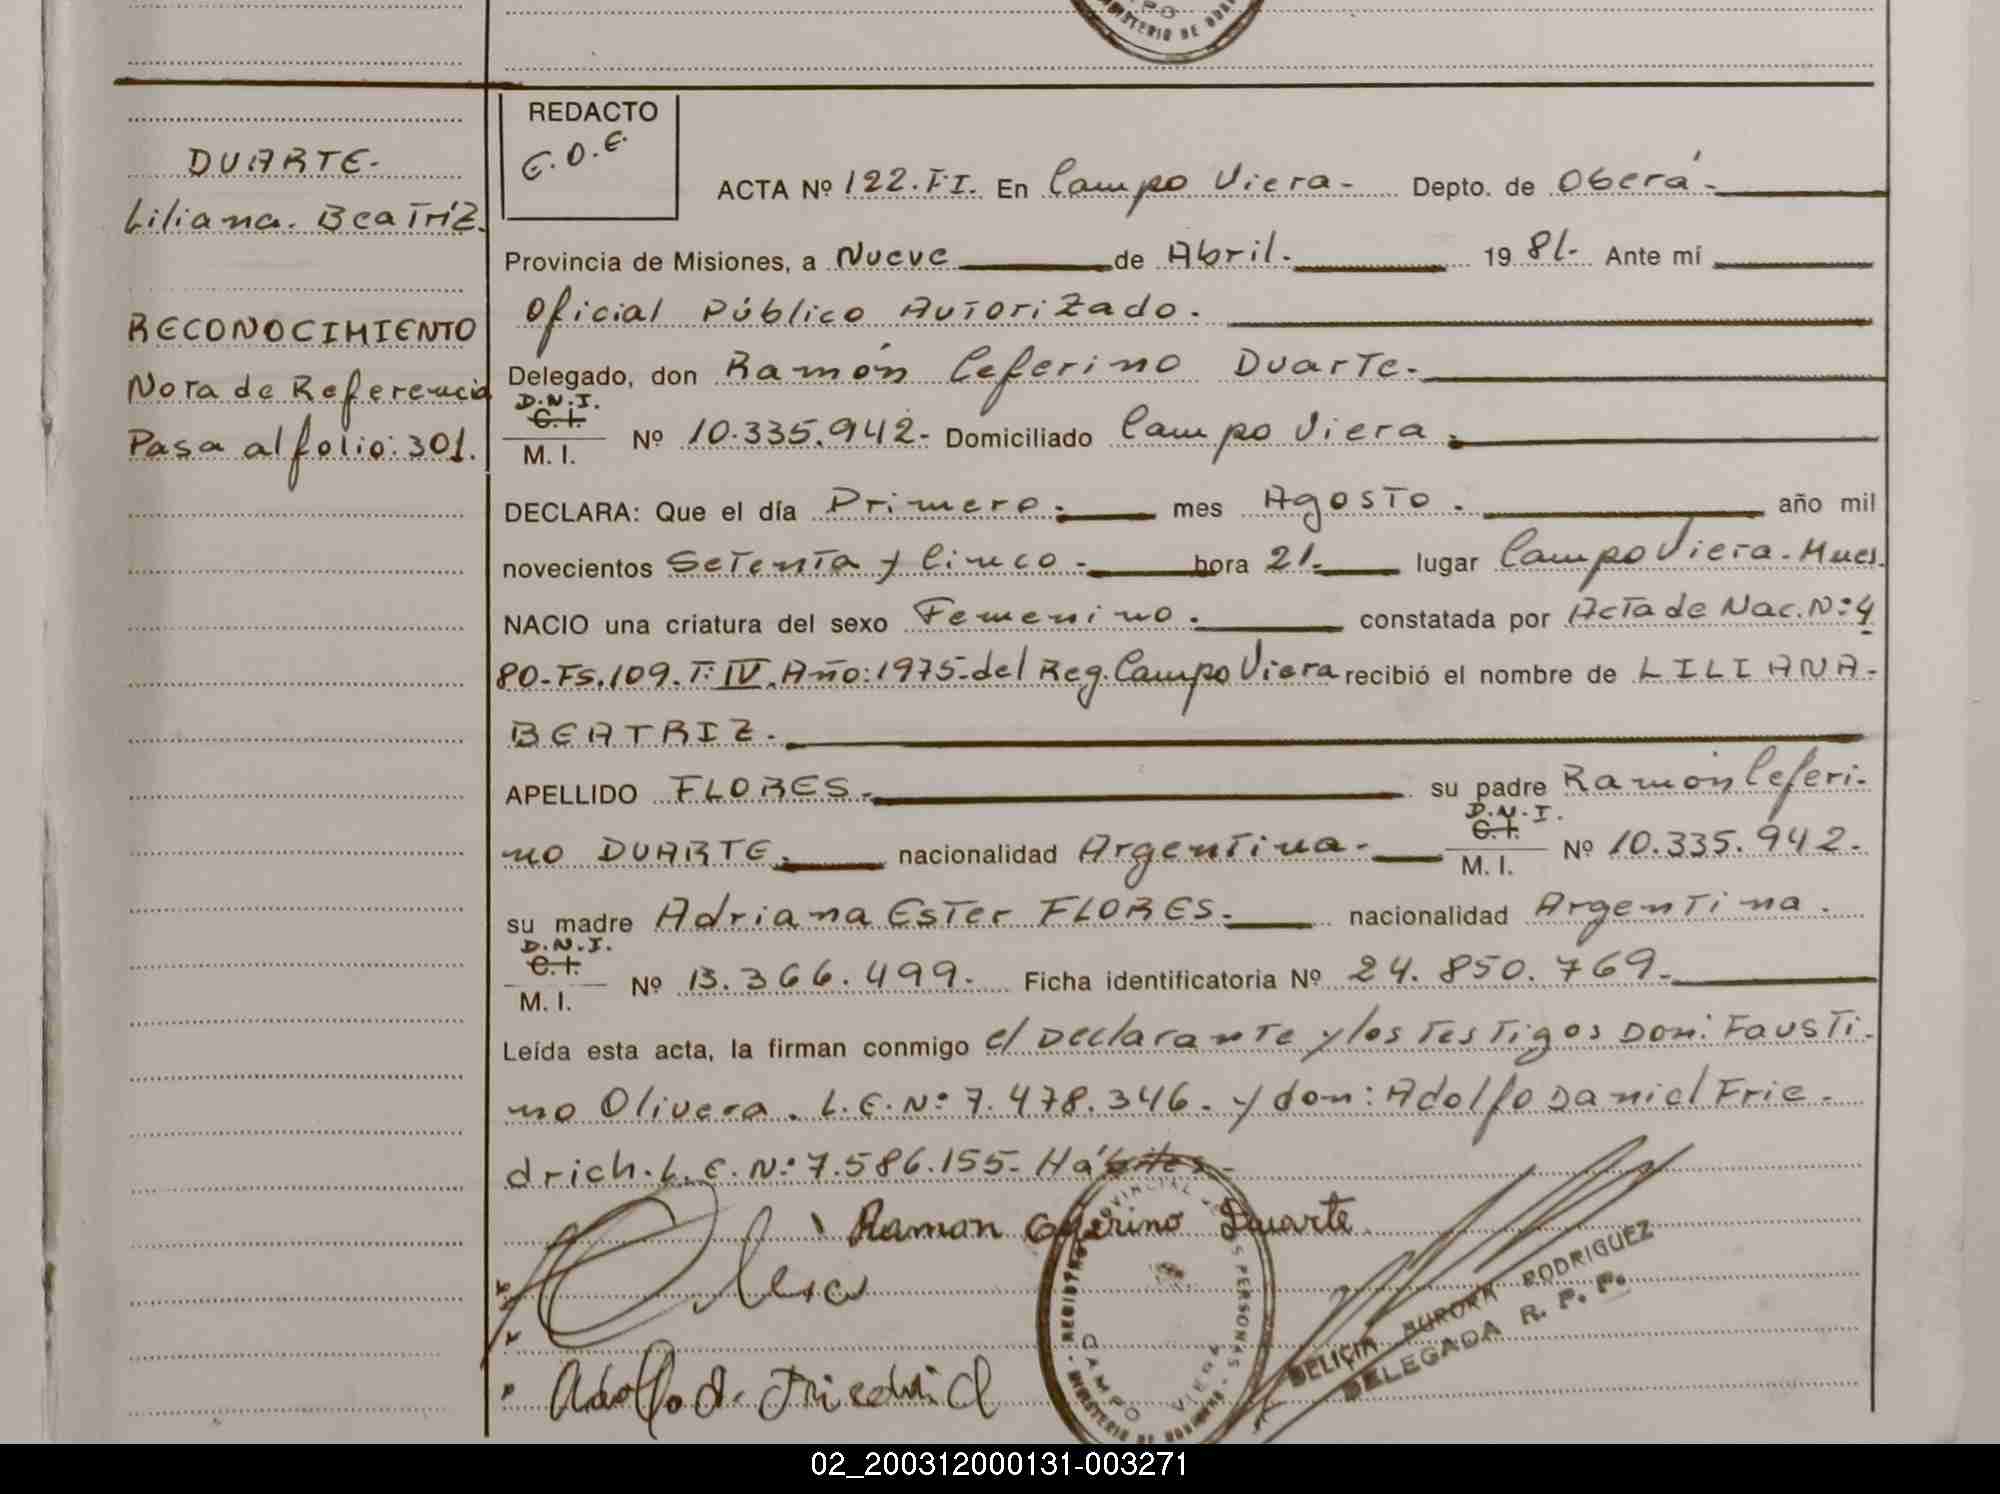 MINISTERIO DE GOB
DUARTE.
Liliana. Beatriz.
RECONOCIMIENTO
Nota de Referencia
Pasa al folio: 301.
REDACTO
E.O.E.
ACTA Nº 122.F.I. En Campo Viera- Depto. de Oberá-
Provincia de Misiones, a Nueve de Abril. 19 81- Ante mí
Oficial Público Autorizado.
Delegado, don Ramón Ceferino Duarte.
D.N.I.
C.I.
M. I. Nº 10.335.942- Domiciliado Campo Viera.
DECLARA: Que el día Primero. mes Agosto. año mil
novecientos Setenta y Cinco- hora 21. lugar Campo Viera-Mnes.
NACIO una criatura del sexo Femenino. constatada por Acta de Nac. Nº: 4
80-Fs.109.T:IV.Año:1975-del Reg. Campo Viera recibió el nombre de LILIANA-
BEATRIZ.
APELLIDO FLORES. su padre Ramón Ceferi-
D.N.I.
C.I.
no DUARTE. nacionalidad Argentina- M. I. Nº 10.335.942-
su madre Adriana Ester FLORES. nacionalidad Argentina.
D.N.I.
C.I.
M. I. Nº 13.366.499. Ficha identificatoria Nº 24.850.769-
Leída esta acta, la firman conmigo el Declarante y los Testigos Don: Fausti-
no Olivera. L.E.Nº 7.478.346. y don: Adolfo Daniel Frie-
drich. L.E.Nº: 7.586.155- Hábiles-
Ramon Ceferino Duarte
Adolfo d. Friedrich
REGISTRO PROVINCIAL DE LAS PERSONAS
CAMPO VIERA
DELICIA AURORA RODRIGUEZ
DELEGADA R. P. P.
02_200312000131-003271